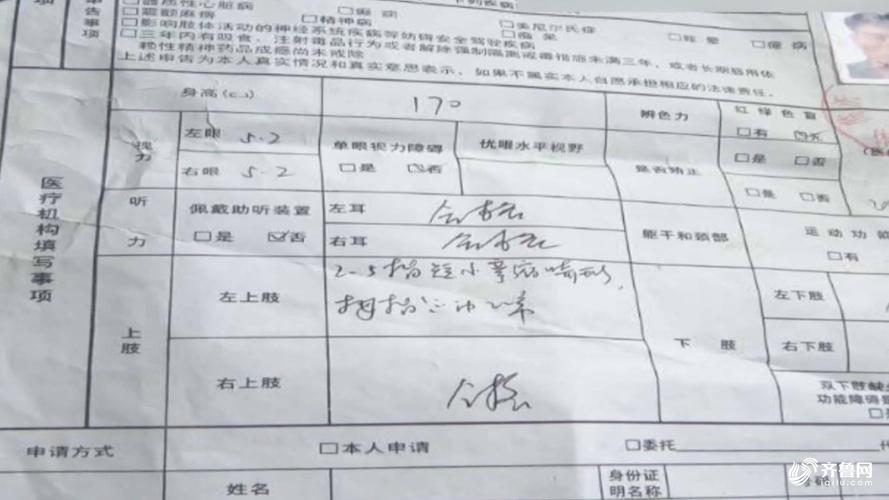 器质性心脏病 □癫痫
□眩晕 □癔病
□震颤麻痹 □精神病 □痴呆
□影响肢体活动的神经系统疾病等妨碍安全驾驶疾病
□三年内有吸食、注射毒品行为或者解除强制隔离戒毒措施未满三年，或者长期服用依
赖性精神药品成瘾尚未戒除
上述申告为本人真实情况和真实意思表示，如果不属实本人自愿承担相应的法律责任。
申告事项
医疗机构填写事项
身高(cm) 170 辨色力 红绿色盲
□有 ☑无
视力 左眼 5.2 单眼视力障碍 优眼水平视野 是否矫正 □是 □否
右眼 5.2 □是 ☑否 □是 □否
听力 佩戴助听装置 左耳 合格
□是 ☑否 右耳 合格
躯干和颈部 运动功能
□有
上肢 左上肢 2-5指短小
拇指
右上肢 合格
下肢 左下肢
右下肢
双下肢缺
功能障碍
申请方式 □本人申请 □委托 代
姓名 身份证
明名称
齐鲁网
iqilu.com